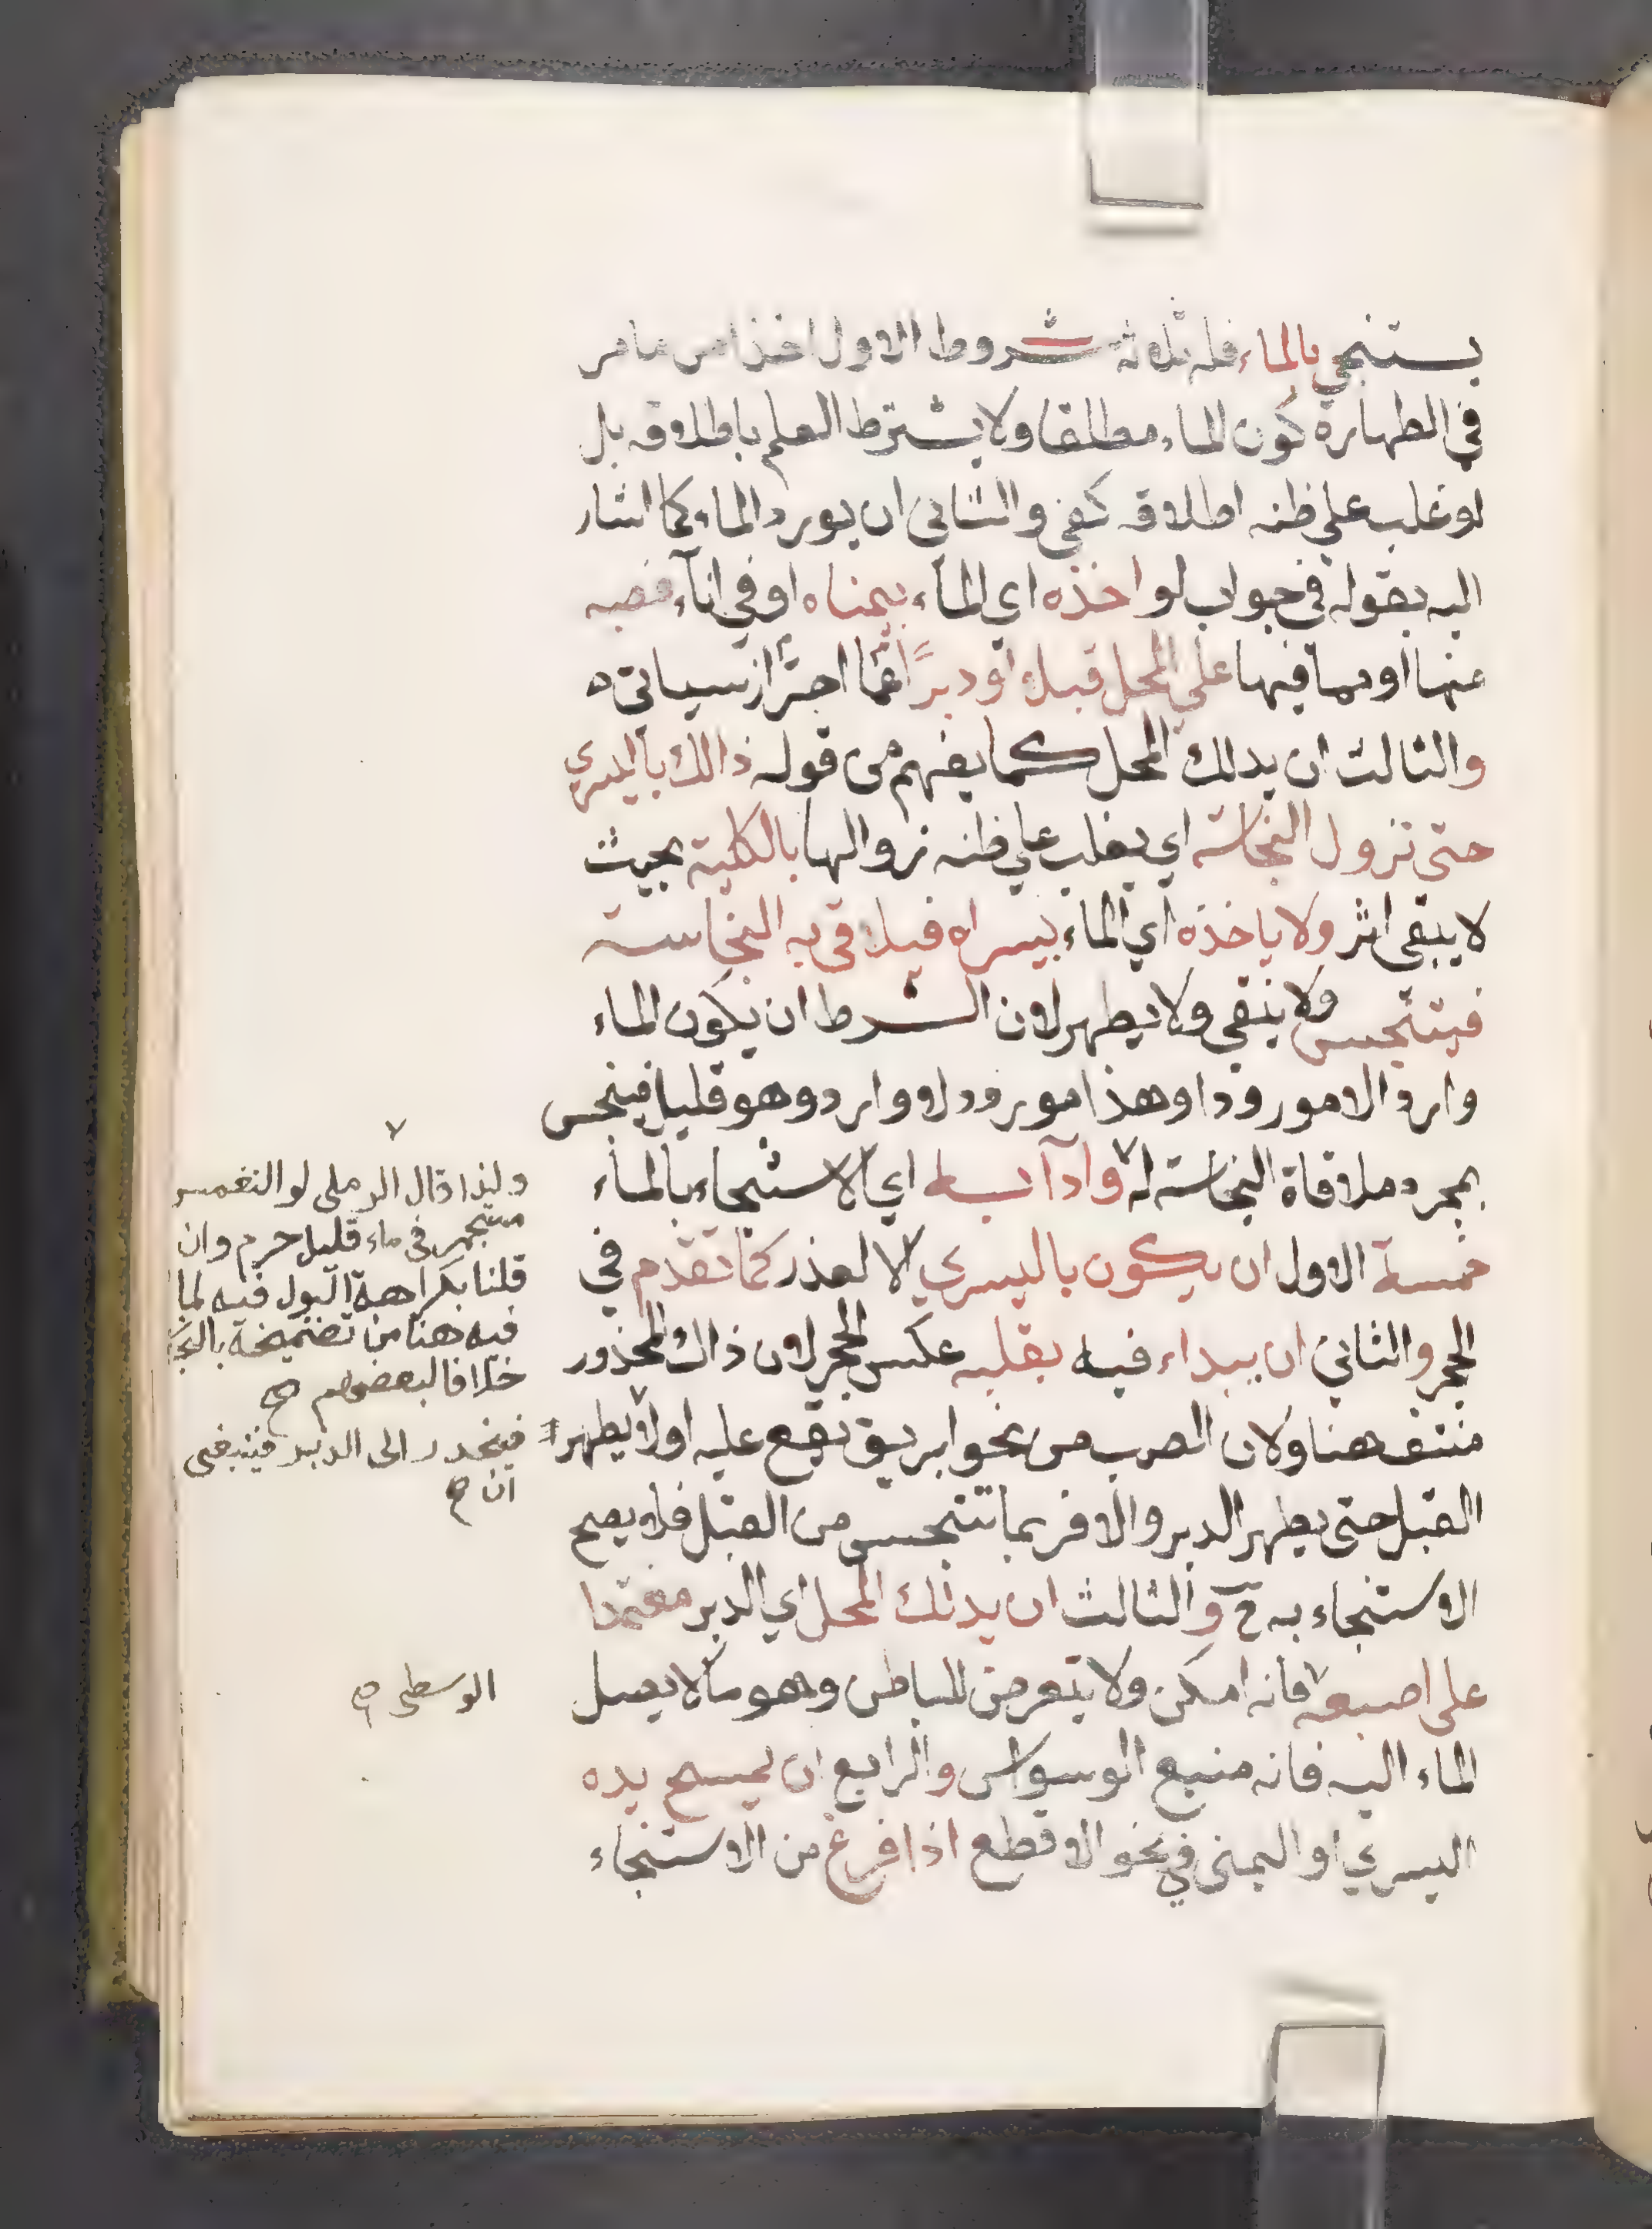 يستنجي بالماء فله ثلاثة شروط الاول اخذا من مامر
في الطهارة كون الماء مطلقا ولا يشترط العلم باطلاقه بل
لو غلب على ظنه اطلاقه كفى والثاني ان يورد الماء كما اشار
اليه بقوله في جواب لو اخذه اي الماء بيمناه او في اناء فصبه
منها او مما فيها على المحل قبلا او دبرا عما احترازسياتي ه
والثالث ان يدلك المحل كما يفهم من قوله ذالك باليسرى
حتى تزول النجاسة اي يغلب على ظنه زوالها بالكلية بحيث
لا يبقى اثر ولا ياخذه اي الماء بيسراه فيلاقى به النجاسة
فيتنجس ولا ينقي ولا يطهر لان الشرط ان يكون الماء
وارد الا مورودا وهذا مورود لا وارد وهو قليل فينجس
بمجرد ملاقاة النجاسة له وادآبه اي الاستنجاء بالماء
خمسة الاول ان يكون باليسري الا لعذر كما تقدم في
الحجر والثاني ان يبداء فيه بقلبه عكس الحجر لان ذاك المحذور
منتف هنا ولان الصب من نحو ابريق يقع عليه اولا يطهر
القبل حتى يطهر الدبر والا فربما تنجس من القبل فلا يصح
الاستنجاء به ح والثالث ان يدلك المحل اي الدبر معتمدا
على اصبعه فانه امكن ولا يتعرض للباطن وهو ما لا يصل
الماء اليه فانه منبع الوسواس والرابع ان يمسح يده
اليسري او اليمنى في نحو الاقطع اذا فرغ من الاستنجاء
ولذا قال الرملي لو انغمس
مستجمر في ماء قليل حرم وان
قلنا بكراهة البول فيه لما
فيه هنا من تضميخه بالنجا
خلافا لبعضهم صح
فينحدر الى الدبر فينبغى
ان ص
الوسطى ص